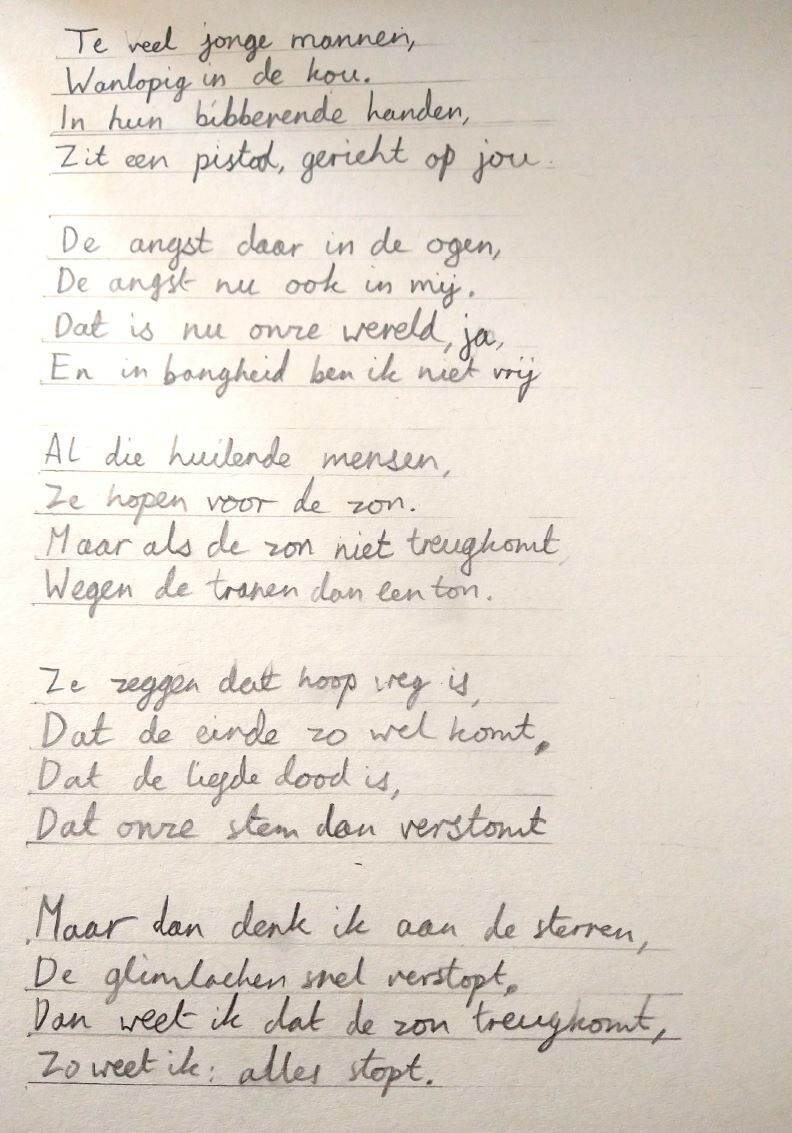 Te veel jonge mannen,
Wanlopig in de kou.
In hun bibberende handen,
Zit een pistool, gericht op jou.
De angst daar in de ogen,
De angst nu ook in mij.
Dat is nu onze wereld, ja,
En in bangheid ben ik niet vrij
Al die huilende mensen,
Ze hopen voor de zon.
Maar als de zon niet treugkomt,
Wegen de tranen dan een ton.
Ze zeggen dat hoop weg is,
Dat de einde zo wel komt,
Dat de liefde dood is,
Dat onze stem dan verstomt
Maar dan denk ik aan de sterren,
De glimlachen snel verstopt,
Dan weet ik dat de zon treugkomt,
Zo weet ik: alles stopt.